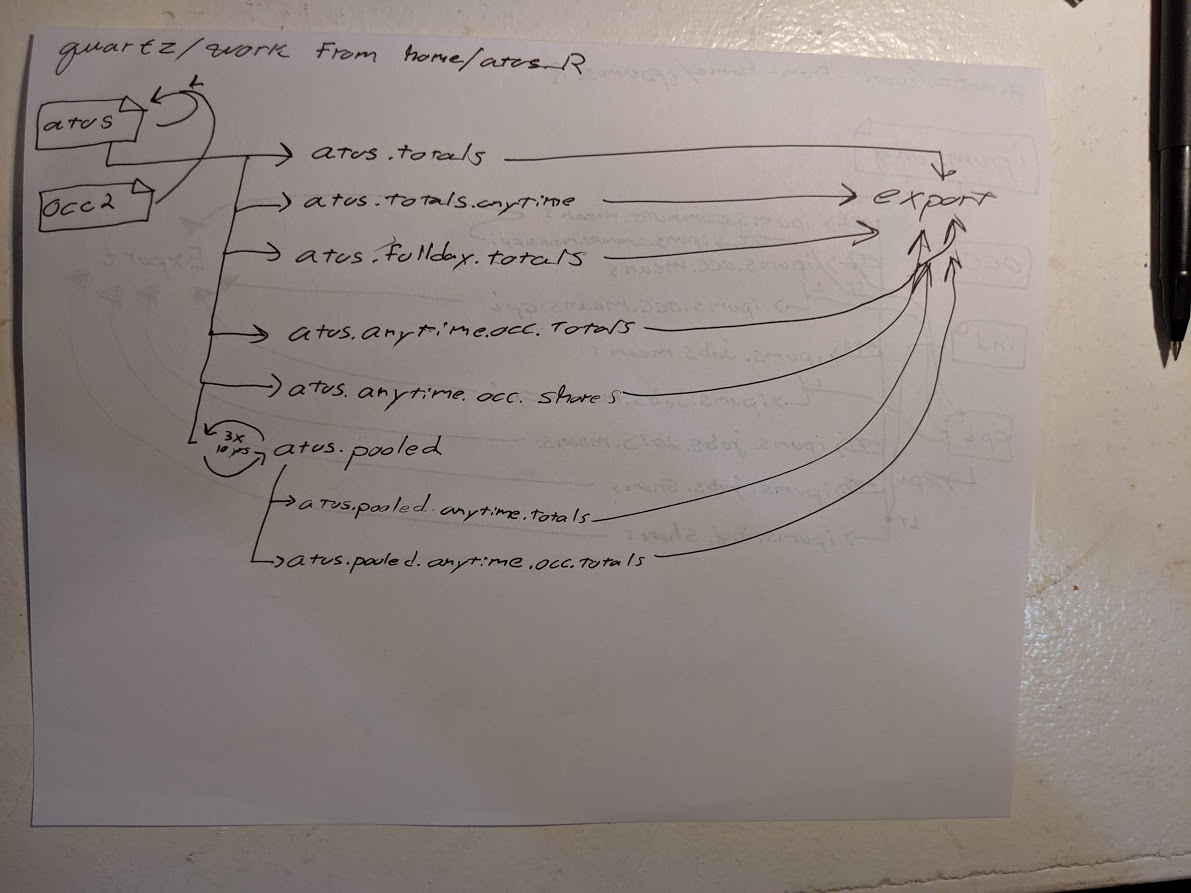 quartz/work From home/atus.R
atus
occ2
atus.totals
atus.totals.anytime
export
atus.fullday.totals
atus.anytime.occ.Totals
atus.anytime.occ.shares
3x
10 yrs
atus.pooled
atus.pooled.anytime.totals
atus.pooled.anytime.occ.totals